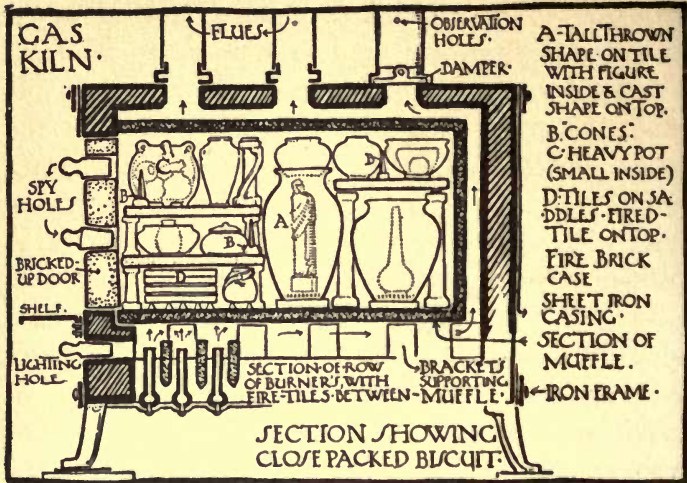 GAS
KILN·
FLUES
OBSERVATION
HOLES·
DAMPER·
A·TALL THROWN
SHAPE·ON TILE
WITH FIGURE
INSIDE & CAST
SHAPE ON TOP.
B."CONES":
C·HEAVY POT
(SMALL INSIDE)
D·TILES ON SA
DDLES·FIRED-
TILE ON TOP·
FIRE BRICK
CASE
SHEET IRON
CASING·
SECTION OF
MUFFLE.
IRON FRAME·
SPY
HOLES
BRICKED-
UP DOOR
SHELF.
LIGHTING
HOLE
B
B
A
D
D
SECTION·OF·ROW
OF BURNERS, WITH
FIRE-TILES·BETWEEN-
BRACKETS
SUPPORTING
MUFFLE·
SECTION SHOWING
CLOSE PACKED BISCUIT·